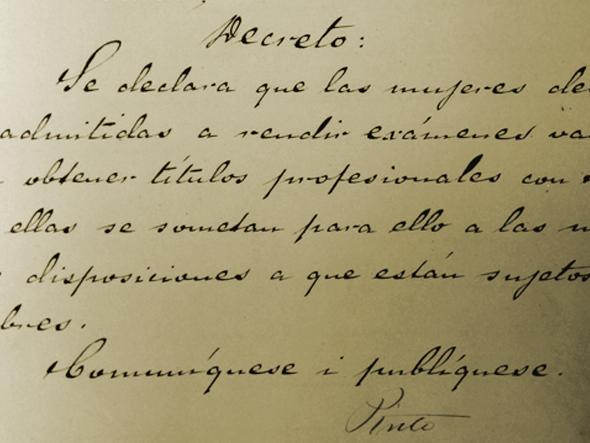 Decreto:
Se declara que las mujeres de
admitidas a rendir exámenes va
obtener títulos profesionales con
ellas se sometan para ello a las
disposiciones a que están sujetos
bres.
Comuníquese i publíquese.
Pinto